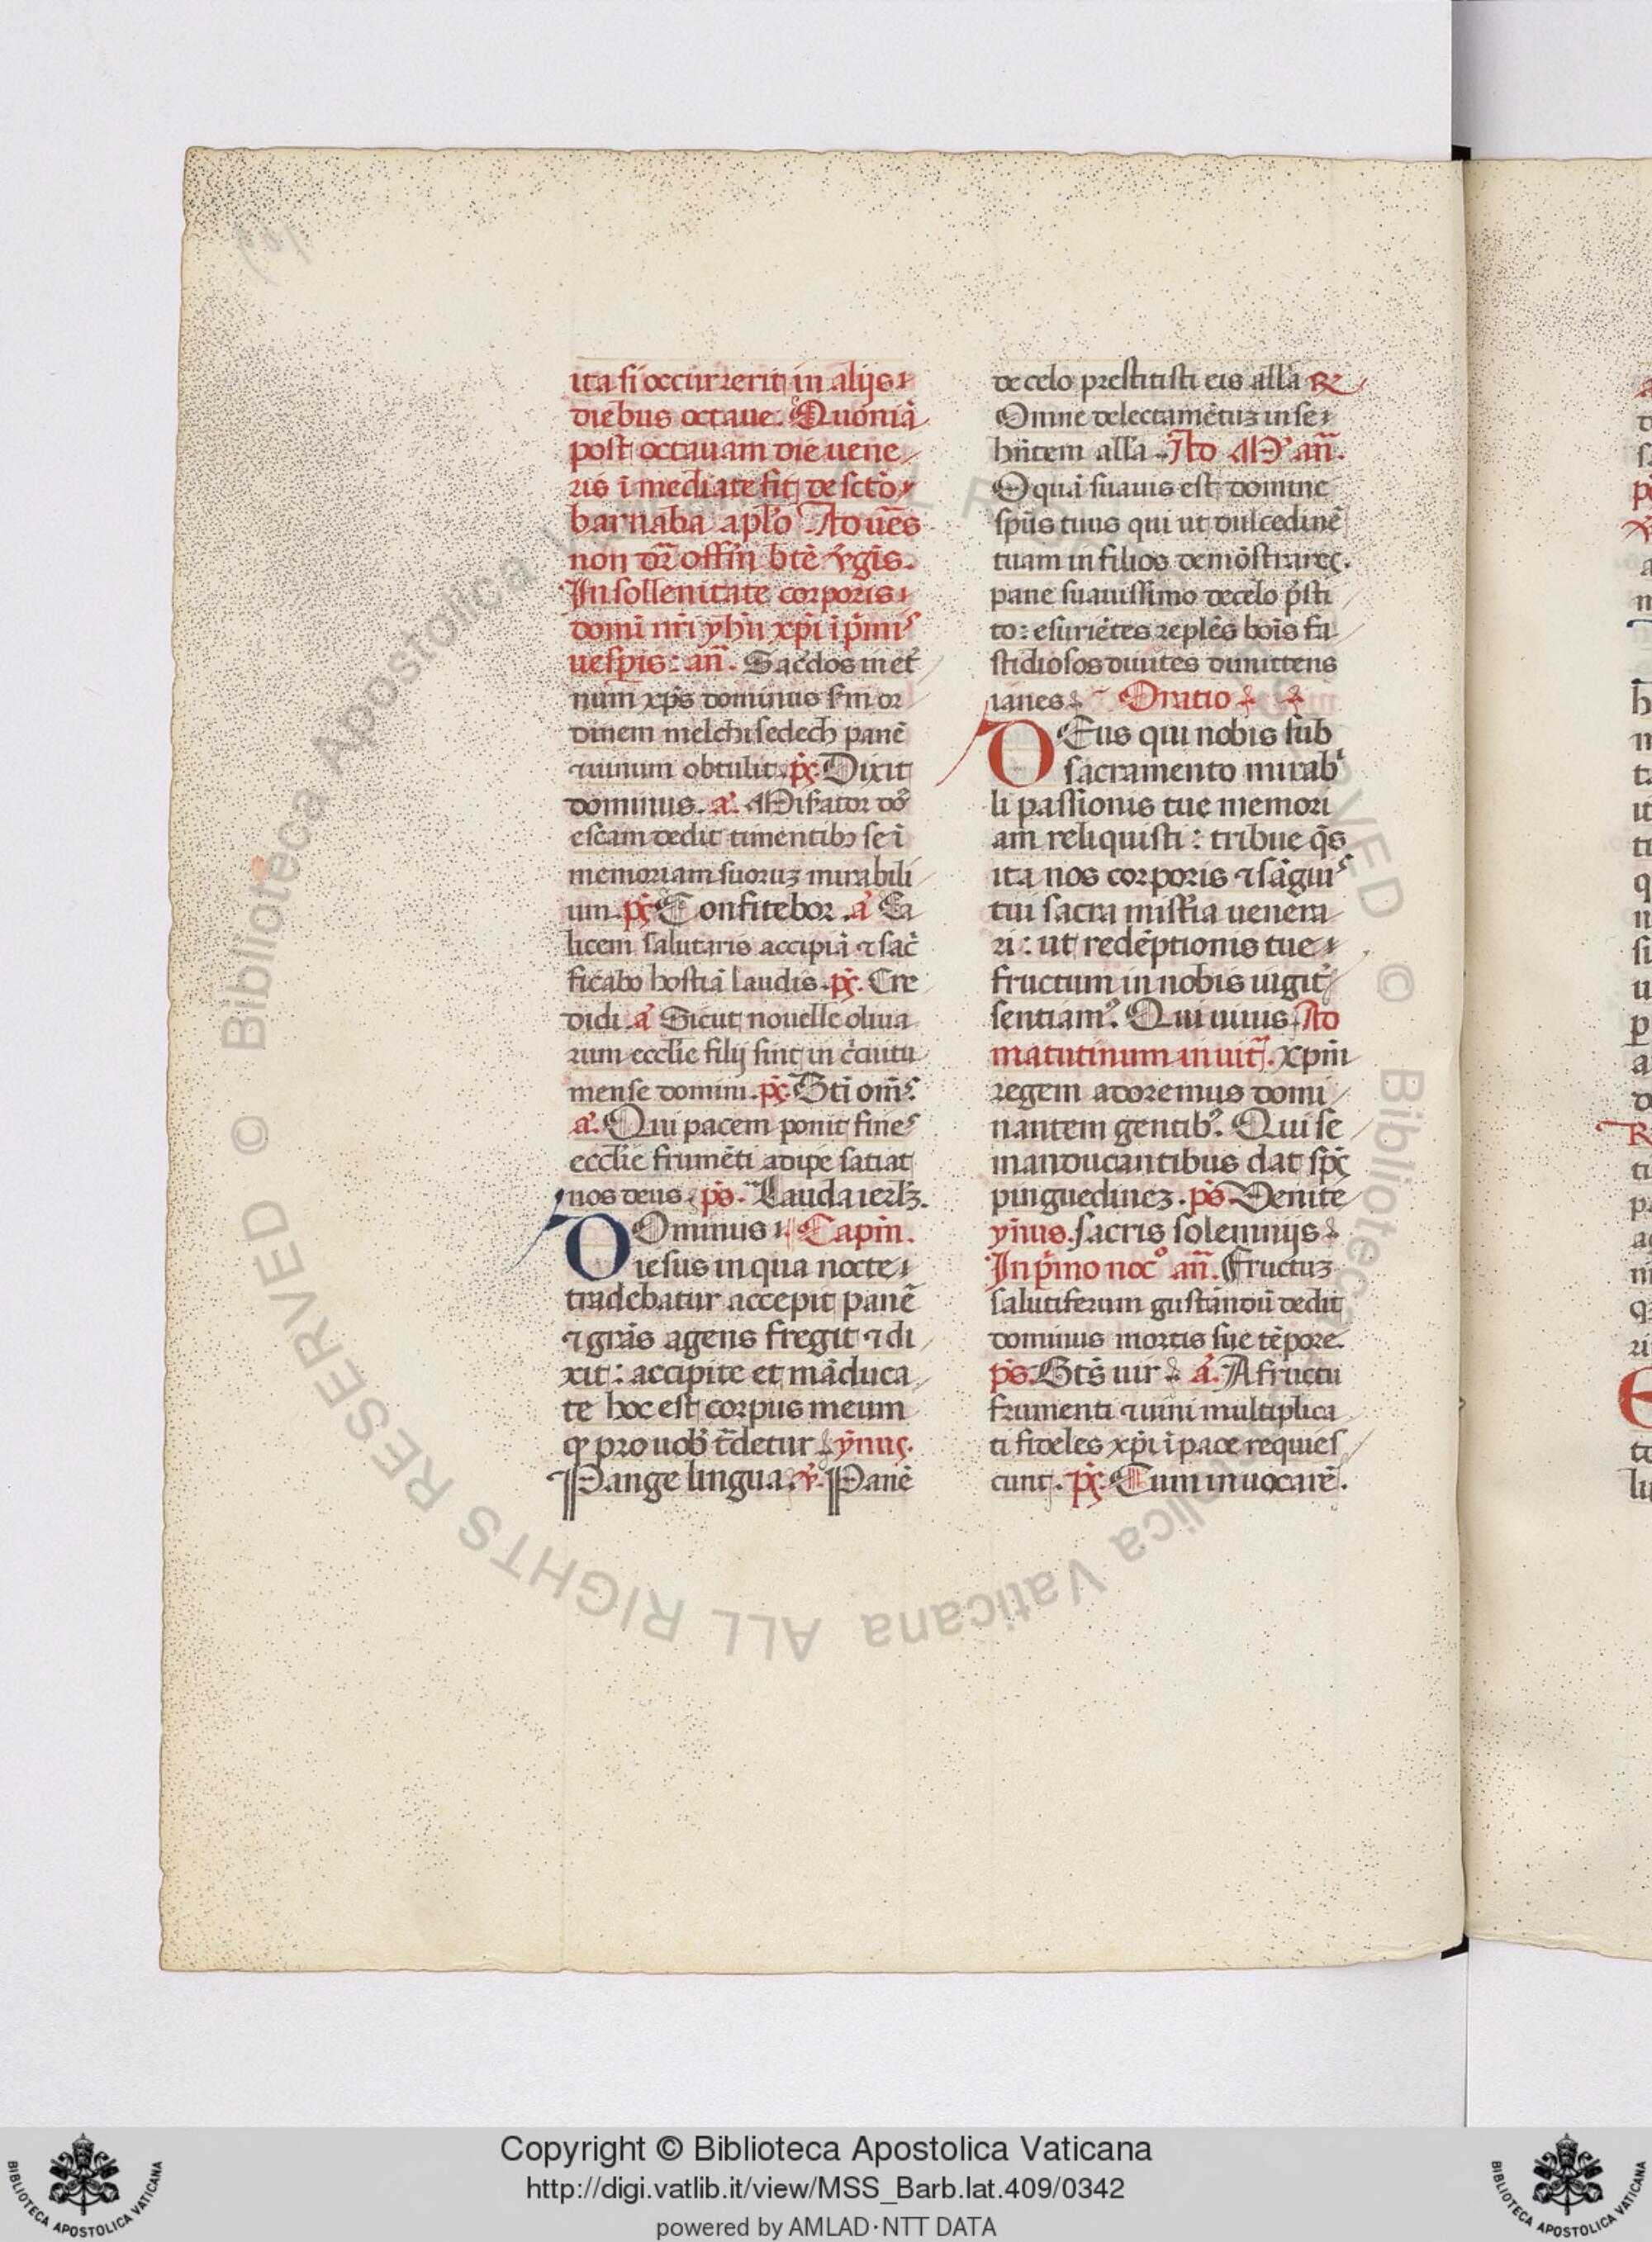 ita si occurrerit in alijs
diebus octaue. Quoniā
post octauam die uene
ris īmediate fit de scto
barnaba aplo Ad uēs
non dr̄ offm̄ btē v̄gīs.
In sollenitate corporis
domī nr̄i yhū xp̄i ī p̄mis
uesp̄is: an̄. Sac̄dos in et̄
num xp̄s dominus s̄m or
dinem melchisedech panē
⁊ uinum obtulit. p̄s. Dixit
dominus. a. Misator dō
escam dedit timentibꝫ se ī
memoriam suoruꝫ mirabili
um. p̄s. Confitebor. a. Ca
licem salutaris accipiā ⁊ sac̄
ficabo hostiā laudis. p̄s. Cre
didi. a Sicut nouelle oliua
rum ecclīe filij sint in c̄cuitu
mense domini. p̄s. Bt̄i om̄s.
a. Qui pacem ponit fines
ecclīe frumēti adipe satiat
nos deus. ps. Lauda ierl̄ꝫ.
DOminus Capl̄m.
iesus in qua nocte
tradebatur accepit panē
⁊ gr̄as agens fregit ⁊ di
xit: accipite et māduca
te hoc est corpus meum
qꝫ pro uob̄ t̄detur ȳnus.
Pange lingua. ℣. Panē
de celo prestitisti eis all̄a ℟
Omne delectamētuꝫ in se
hn̄tem all̄a. Ad M an̄.
O quā suauis est domine
sp̄us tuus qui ut dulcedinē
tuam in filios demōstrares.
pane suauissimo de celo p̄sti
to: esuriētes replēs boīs fa
stidiosos diuites dimittens
ianes. Oratio
DEus qui nobis sub
sacramento mirabi
li passionis tue memori
am reliquisti: tribue q̄s
ita nos corporis ⁊ sāguis
tui sacra mist̄ia uenera
ri: ut redēptionis tue
fructum in nobis uigit̄
sentiam. Qui uiuis. Ad
matutinum inuit̄. Xpm̄
regem adoremus domi
nantem gentibꝫ. Qui se
manducantibus dat sp̄s
pinguedineꝫ. ps. Uenite
ȳnus. sacris solenniis
In p̄mo noc̄ an̄. Fructuꝫ
salutiferum gustandū dedit
dominus mortis sue tēpore.
ps. Bt̄s uir. a. A fructu
frumenti ⁊ uini multiplica
ti fideles xp̄i ī pace requies
cunt. p̄s. Cum inuocarē.
Biblioteca Apostolica Vaticana ALL RIGHTS RESERVED ©
Copyright © Biblioteca Apostolica Vaticana
http://digi.vatlib.it/view/MSS_Barb.lat.409/0342
powered by AMLAD·NTT DATA
BIBLIOTECA APOSTOLICA VATICANA
BIBLIOTECA APOSTOLICA VATICANA